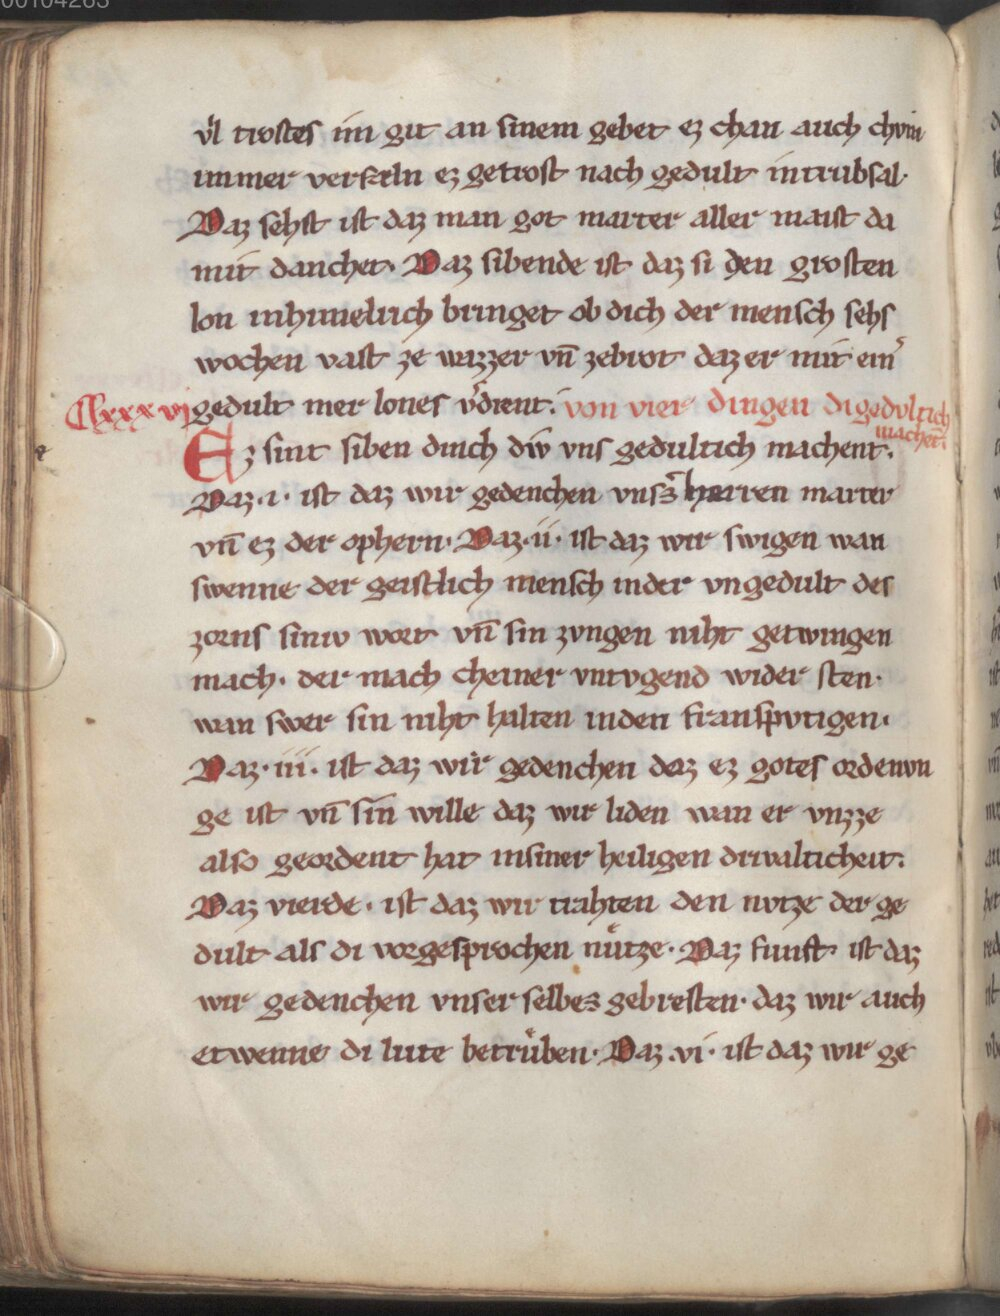 00104263
vͥl trostes im git an sinem gebet ez chan auch chvm
immer verfæln ez getrost nach gedult in trubsal·
Daz sehst ist daz man got marter aller maist da
mit danchet· Daz sibende ist daz si den grosten
lon inhimelrich bringet ob dich der mensch sehs
wochen vast ze wazzer vn̄ zebrot daz er mit ein͛
gedult mer lones v͛dient· von vier dingen di gedvltich
machent·
CLxxxvi
Ez sint siben dinch div vns gedultich machent·
Daz·i· ist daz wir gedenchen vnss͛ herren marter
vn̄ ez der ophern· Daz·ii· ist daz wir swigen wan
swenne der geistlich mensch inder vngedult des
zorns siniv wort vn̄ sin zvngen niht getwingen
mach· der mach cheiner vntvgend wider sten·
wan swer sin niht halten inden
Daz·iii· ist daz wir gedenchen daz ez gotes ordenvn
ge ist vn̄ sin wille daz wir liden wan er vnzze
also geordent hat insiner heiligen drivalticheit·
Daz vierde· ist daz wir trahten den nvtze der ge
dult als di vorgesprochen nuͤtze· Daz funft ist daz
wir gedenchen vnser selbes gebresten· daz wir auch
etwenne di lute betruͤben· Daz·vi· ist daz wir ge